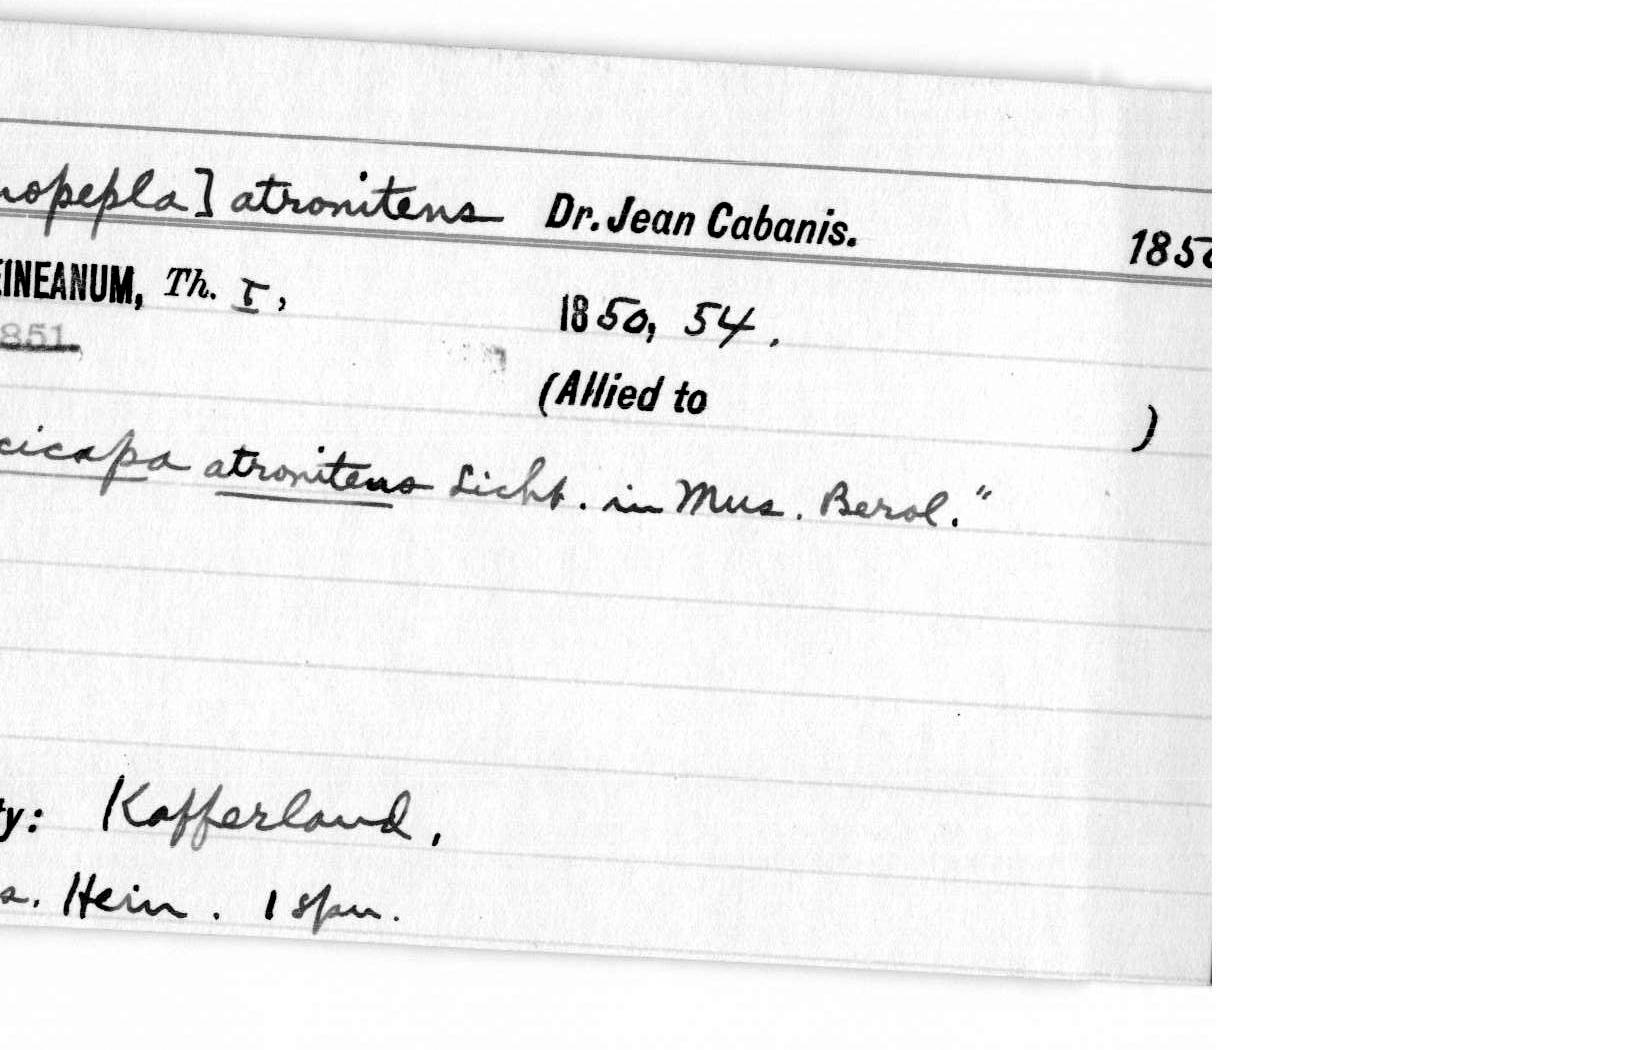 nopepla] atronitens Dr. Jean Cabanis. 1850
EINEANUM, Th. I, 1850, 54.
851
(Allied to )
cicapa atronitens Licht. in Mus. Berol."
ty: Kafferland,
s. Hein. 1 spm.